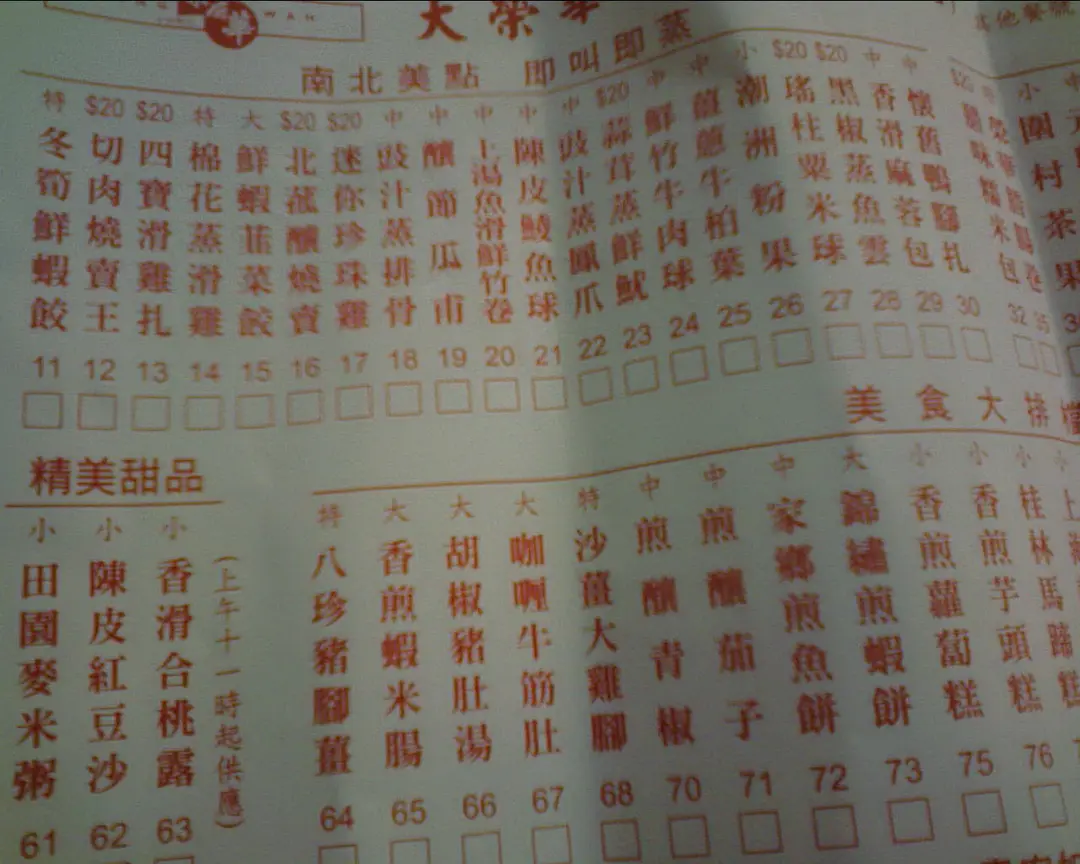 WAH
大榮華
其他餐號
南北美點 即叫即蒸
特 冬筍鮮蝦餃 11
$20 切肉燒賣王 12
$20 四寶滑雞扎 13
特 棉花蒸滑雞 14
大 鮮蝦韮菜餃 15
$20 北菰釀燒賣 16
$20 迷你珍珠雞 17
中 豉汁蒸排骨 18
中 釀節瓜甫 19
中 上湯魚滑鮮竹卷 20
中 陳皮鯪魚球 21
中 豉汁蒸鳳爪 22
$20 蒜茸蒸鮮魷 23
中 鮮竹牛肉球 24
中 薑蔥牛柏葉 25
小 潮洲粉果 26
$20 瑤柱粟米球 27
$20 黑椒蒸魚雲 28
中 香滑麻蓉包 29
中 懷舊鴨腳扎 30
$20 臘味糯米包 32
卷 35
小 圍村茶果
精美甜品
小 田園麥米粥 61
小 陳皮紅豆沙 62
小 香滑合桃露 63
(上午十一時起供應)
美食大排檔
特 八珍豬腳薑 64
大 香煎蝦米腸 65
大 胡椒豬肚湯 66
大 咖喱牛筋肚 67
特 沙薑大雞腳 68
中 煎釀青椒 70
中 煎釀茄子 71
中 家鄉煎魚餅 72
大 錦繡煎蝦餅 73
小 香煎蘿蔔糕 75
小 香煎芋頭糕 76
小 桂林馬蹄糕